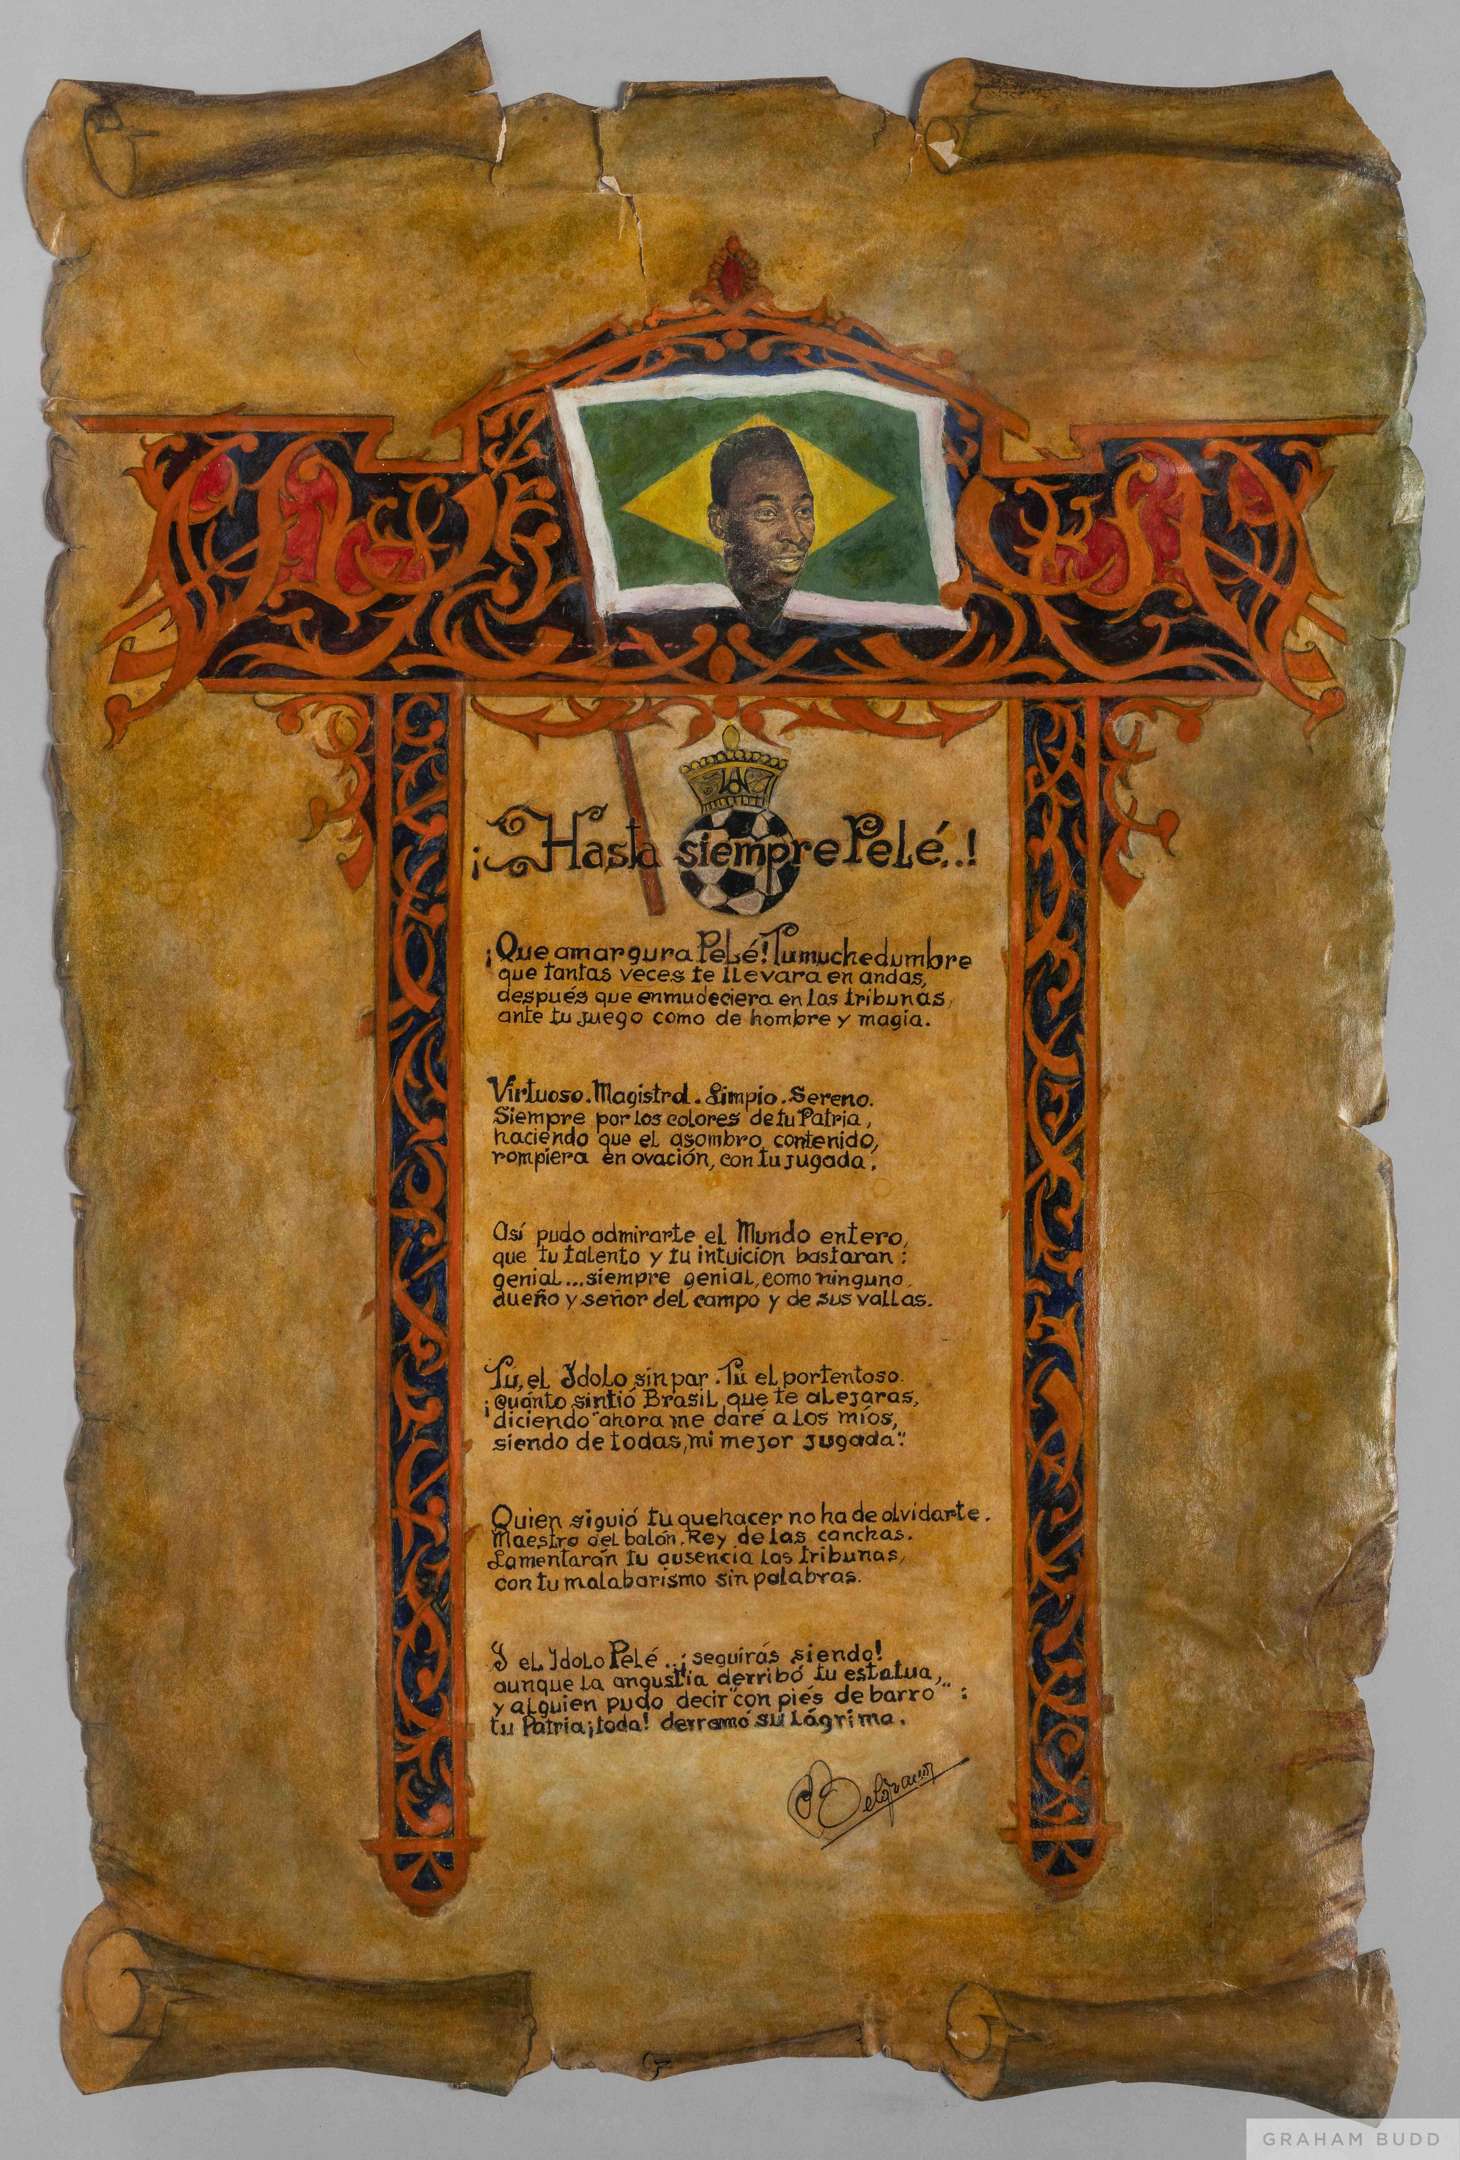 ¡Hasta siempre Pelé..!
¡Que amargura Pelé! Tu muchedumbre
que tantas veces te llevara en andas,
después que enmudeciera en las tribunas,
ante tu juego como de hombre y magia.
Virtuoso. Magistral. Limpio. Sereno.
Siempre por los colores de tu Patria,
haciendo que el asombro contenido,
rompiera en ovación, con tu jugada.
Así pudo admirarte el Mundo entero,
que tu talento y tu intuicion bastaran:
genial...siempre genial, como ninguno,
dueño y señor del campo y de sus vallas.
Tú, el Idolo sin par. Tú el portentoso.
¡Cuánto sintió Brasil que te alejaras,
diciendo "ahora me daré a los míos,
siendo de todas, mi mejor jugada".
Quien siguió tu quehacer no ha de olvidarte.
Maestro del balón. Rey de las canchas.
Lamentarán tu ausencia las tribunas,
con tu malabarismo sin palabras.
Y el Idolo Pelé..¡seguirás siendo!
aunque la angustia derribó tu estatua,
y alguien pudo decir "con piés de barro":
tu Patria ¡toda! derramó su lágrima.
Belgrano
GRAHAM BUDD